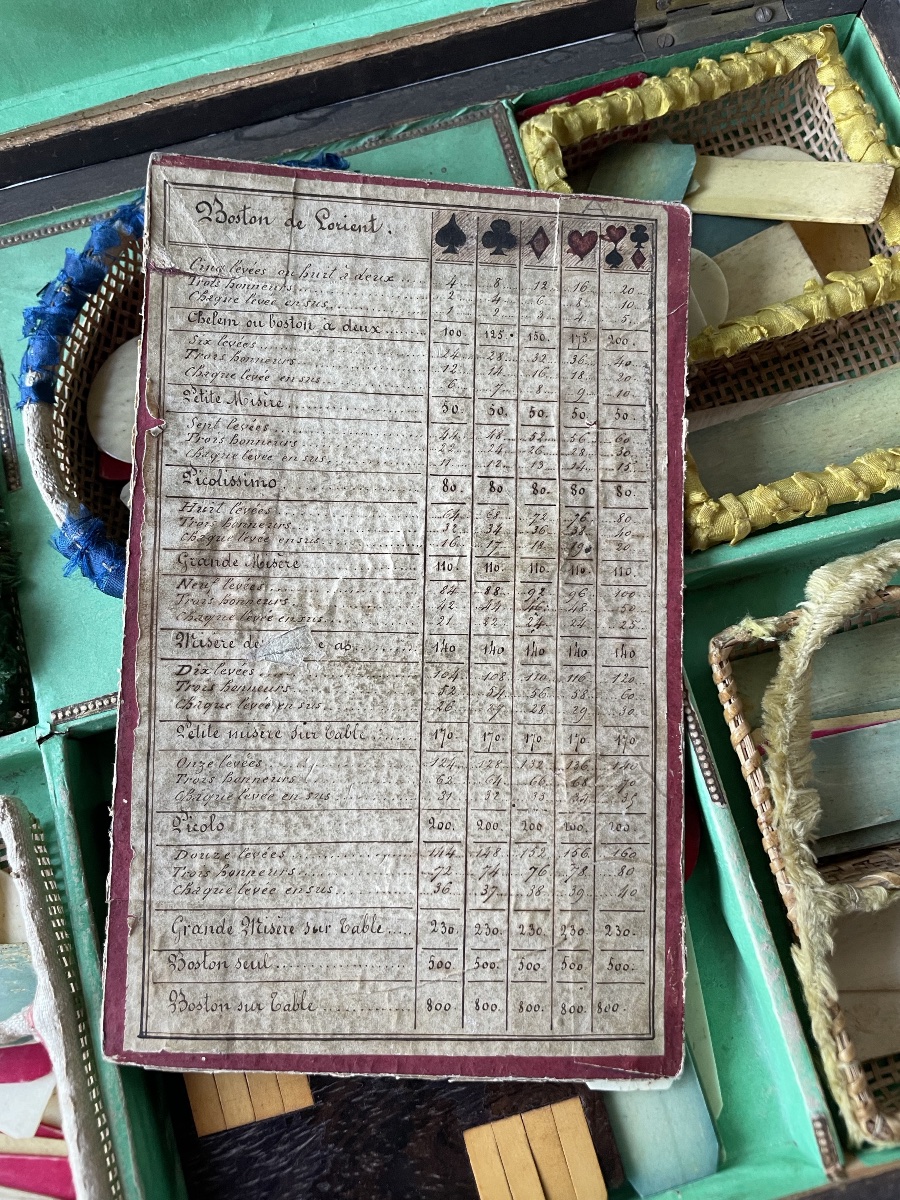 Boston de Lorient.
Cinq levées ou huit à deux 4 8 12 16 20
Trois honneurs 2 4 6 8 10
Chaque levée en sus 1 2 3 4 5
Chelem ou boston à deux 100 125 150 175 200
Six levées 24 28 32 36 40
Trois honneurs 12 14 16 18 20
Chaque levée en sus 6 7 8 9 10
Petite Misère 50 50 50 50 50
Sept levées 44 48 52 56 60
Trois honneurs 22 24 26 28 30
Chaque levée en sus 11 12 13 14 15
Picolissimo 80 80 80 80 80
Huit levées 64 68 72 76 80
Trois honneurs 32 34 36 38 40
Chaque levée en sus 16 17 18 19 20
Grande Misère 110 110 110 110 110
Neuf levées 84 88 92 96 100
Trois honneurs 42 44 46 48 50
Chaque levée en sus 21 22 24 24 25
Misère de as 140 140 140 140 140
Dix levées 104 108 110 116 120
Trois honneurs 52 54 56 58 60
Chaque levée en sus 26 27 28 29 30
Petite misère sur Table 170 170 170 170 170
Onze levées 124 128 132 136 140
Trois honneurs 62 64 66 68 70
Chaque levée en sus 31 32 33 34 35
Picolo 200 200 200 200 200
Douze levées 144 148 152 156 160
Trois honneurs 72 74 76 78 80
Chaque levée en sus 36 37 38 39 40
Grande Misère sur Table 230 230 230 230 230
Boston seul 500 500 500 500 500
Boston sur Table 800 800 800 800 800